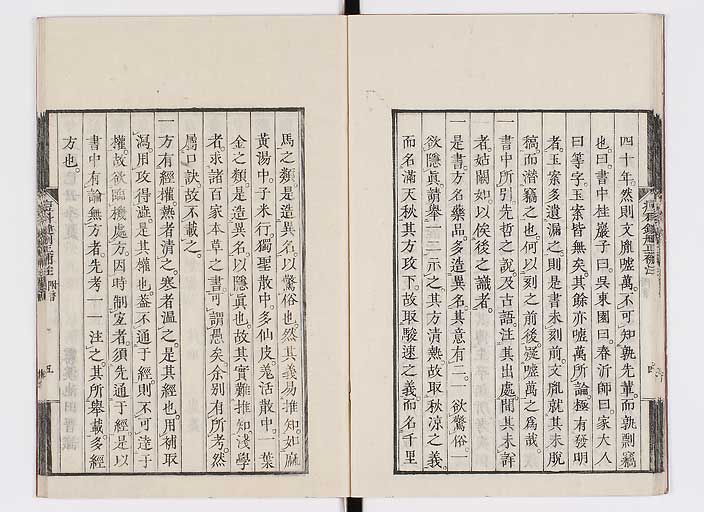 四十年。然則文胤嘘萬。不可知孰先輩。而孰剽竊
也。曰。書中桂巖子曰。吳東園曰。春沂師曰。家大人
曰等字。玉案皆無矣。其餘亦嘘萬所論。極有發明
者。玉案多遺漏之。則是書未刻前。文胤就其未脫
稿。而潛竊之也。何以刻之前後。疑嘘萬之爲哉。
一書中所引。先哲之說。及古語。注其出處。間其未詳
者。姑闕如。以俟後之識者。
一是書。方名藥品。多造異名。其意有二。一欲驚俗。一
欲隱眞。請舉一二示之。其方清熱。故取秋涼之義。
而名滿天秋。其方攻下。故取駿速之義。而名千里
馬之類。是造異名。以驚俗也。然其義易推知。如麻
黃湯中。子米行。獨聖散中。多仙皮。羗活散中。一葉
金之類。是造異名。以隱眞也。故其實難推知。淺學
者。求諸百家本草之書。可謂愚矣。余別有所考。然
屬口訣。故不載之。
一方有經權。熱者清之。寒者溫之。是其經也。用補取
瀉。用攻得澁。是其權也。蓋不通于經。則不可逹于
權。故欲臨機處方。因時制宜者。須先通于經。是以
書中有論無方者。先考一一注之。其所舉載。多經
方也。